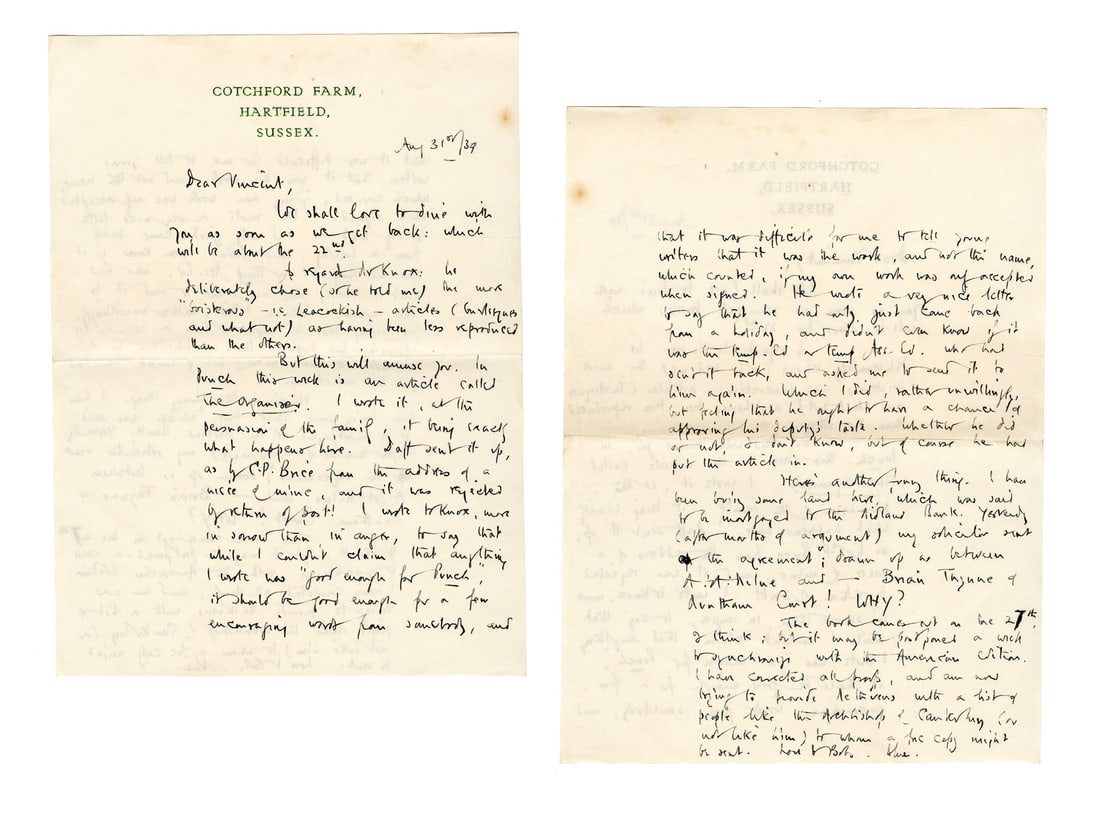 COTCHFORD FARM,
HARTFIELD,
SUSSEX.
Aug 31st/34
Dear Vincent,
We shall love to dine with
you as soon as we get back: which
will be about the 22nd.
As regards Dr Knox: he
deliberately chose (so he told me) the more
"boisterous" – i.e. Leacockish – articles (burlesques
and what not) as having been less reproduced
than the others.
But this will amuse you. In
Punch this week is an article called
The Organiser. I wrote it, at the
persuasion of the family, it being exactly
what happens here. Daff sent it up,
as by C.P. Brice from the address of a
niece of mine, and it was rejected
by return of post! I wrote to Knox, more
in sorrow than in anger, to say that
while I couldn't claim that anything
I wrote was "good enough for Punch",
it should be good enough for a few
encouraging words from somebody, and
that it was difficult for me to tell young
writers that it was the work, and not the name,
which counted, if my own work was only accepted
when signed. He wrote a very nice letter
to say that he had only just come back
from a holiday, and didn't even know if it
was the temp. Ed or temp Ass. Ed. who had
sent it back, and asked me to send it to
him again. Which I did, rather unwillingly,
but feeling that he ought to have a chance of
approving his deputy's taste. Whether he did
or not, I don't know, but of course he had
put the article in.
Here's another funny thing. I have
been buying some land here, which was said
to be mortgaged to the Midland Bank. Yesterday
(after months of argument) my solicitor sent
the agreement; drawn up as between
A.A. Milne and – Brian Thynne of
Court! WHY?
The book comes out on the 27th,
I think; but it may be postponed a week
to synchronise with the American edition.
I have corrected all proofs, and am now
trying to provide Methuens with a list of
people like the Archbishop of Canterbury (or
not like him) to whom a free copy might
be sent. Love to Bobs. Blue.